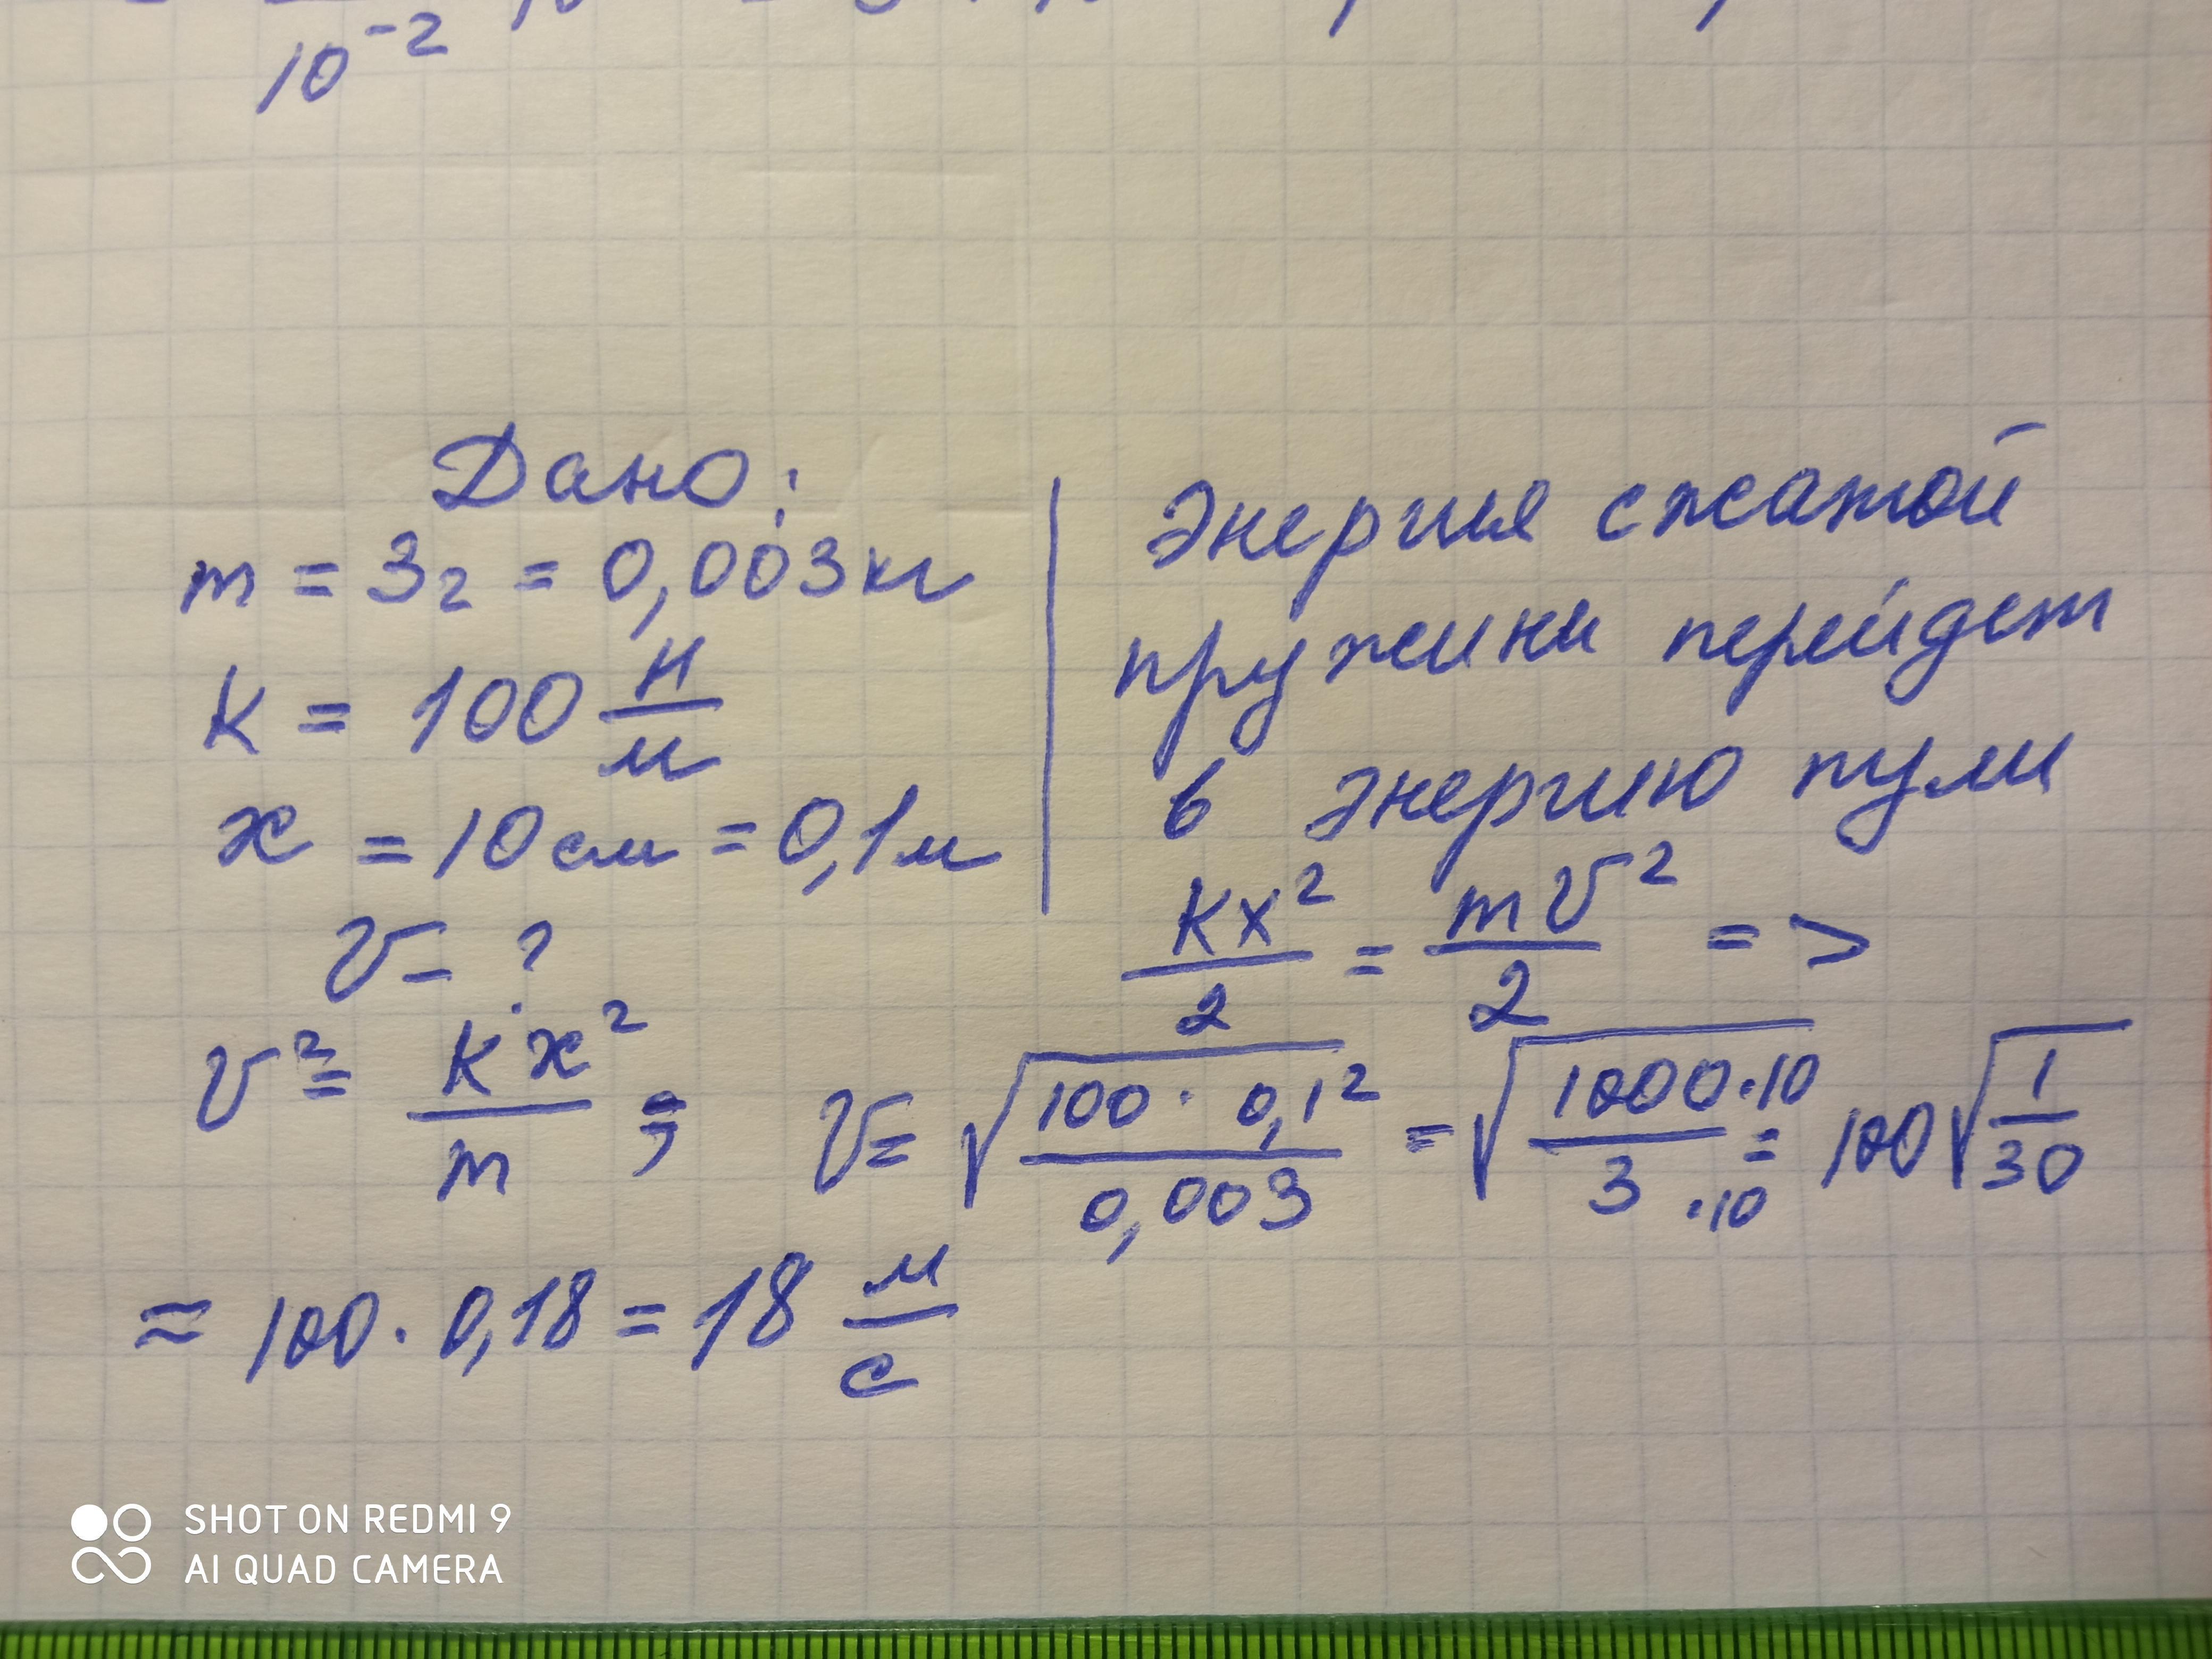 10⁻²
Дано:
m = 3г = 0,003кг
k = 100 Н/м
x = 10см = 0,1м
v = ?
Энергия сжатой
пружины перейдет
в энергию пули
kx²/2 = mv²/2 =>
v² = kx²/m; v = √(100 · 0,1²/0,003) = √(1000·10/3·10) = 100√(1/30)
≈ 100 · 0,18 = 18 м/с
SHOT ON REDMI 9
AI QUAD CAMERA